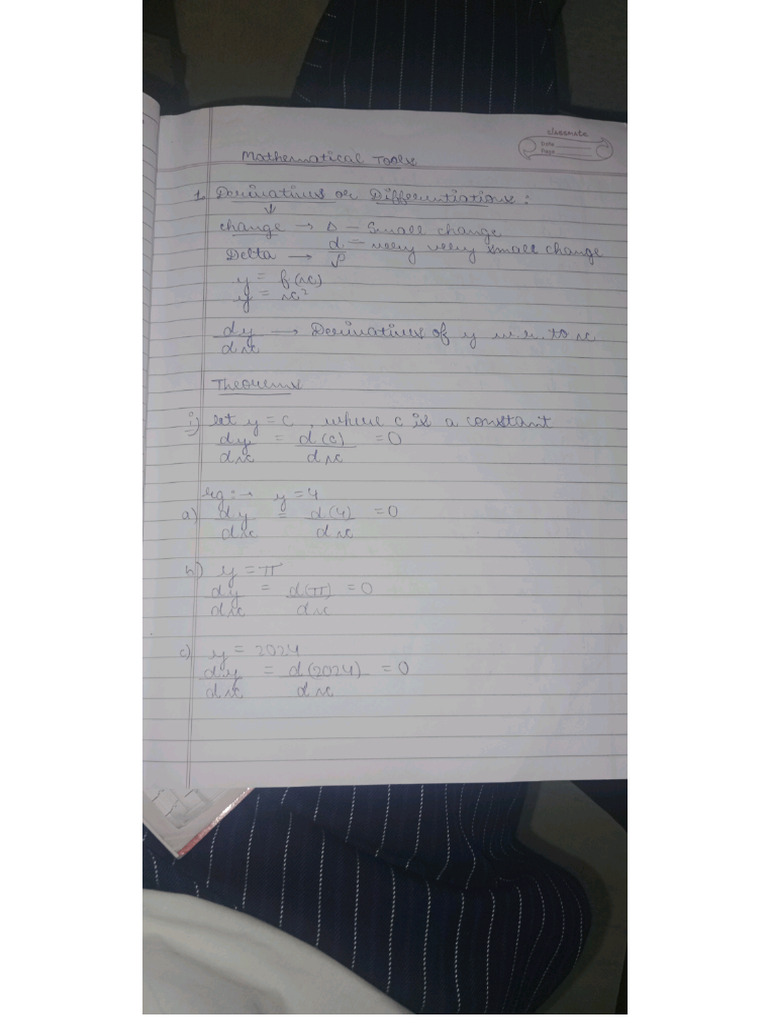 classmate
Date
Page
Mathematical Tools
1. Derivatives or Differentiations :
↓
change → Δ - Small change
d - very very small change
Delta →
y = f(x)
y = x²
dy/dx → Derivatives of y w.r. to x
Theorems
i) let y = c , where c is a constant
dy/dx = d(c)/dx = 0
eg :→ y = 4
a) dy/dx = d(4)/dx = 0
b) y = π
dy/dx = d(π)/dx = 0
c) y = 2024
dy/dx = d(2024)/dx = 0